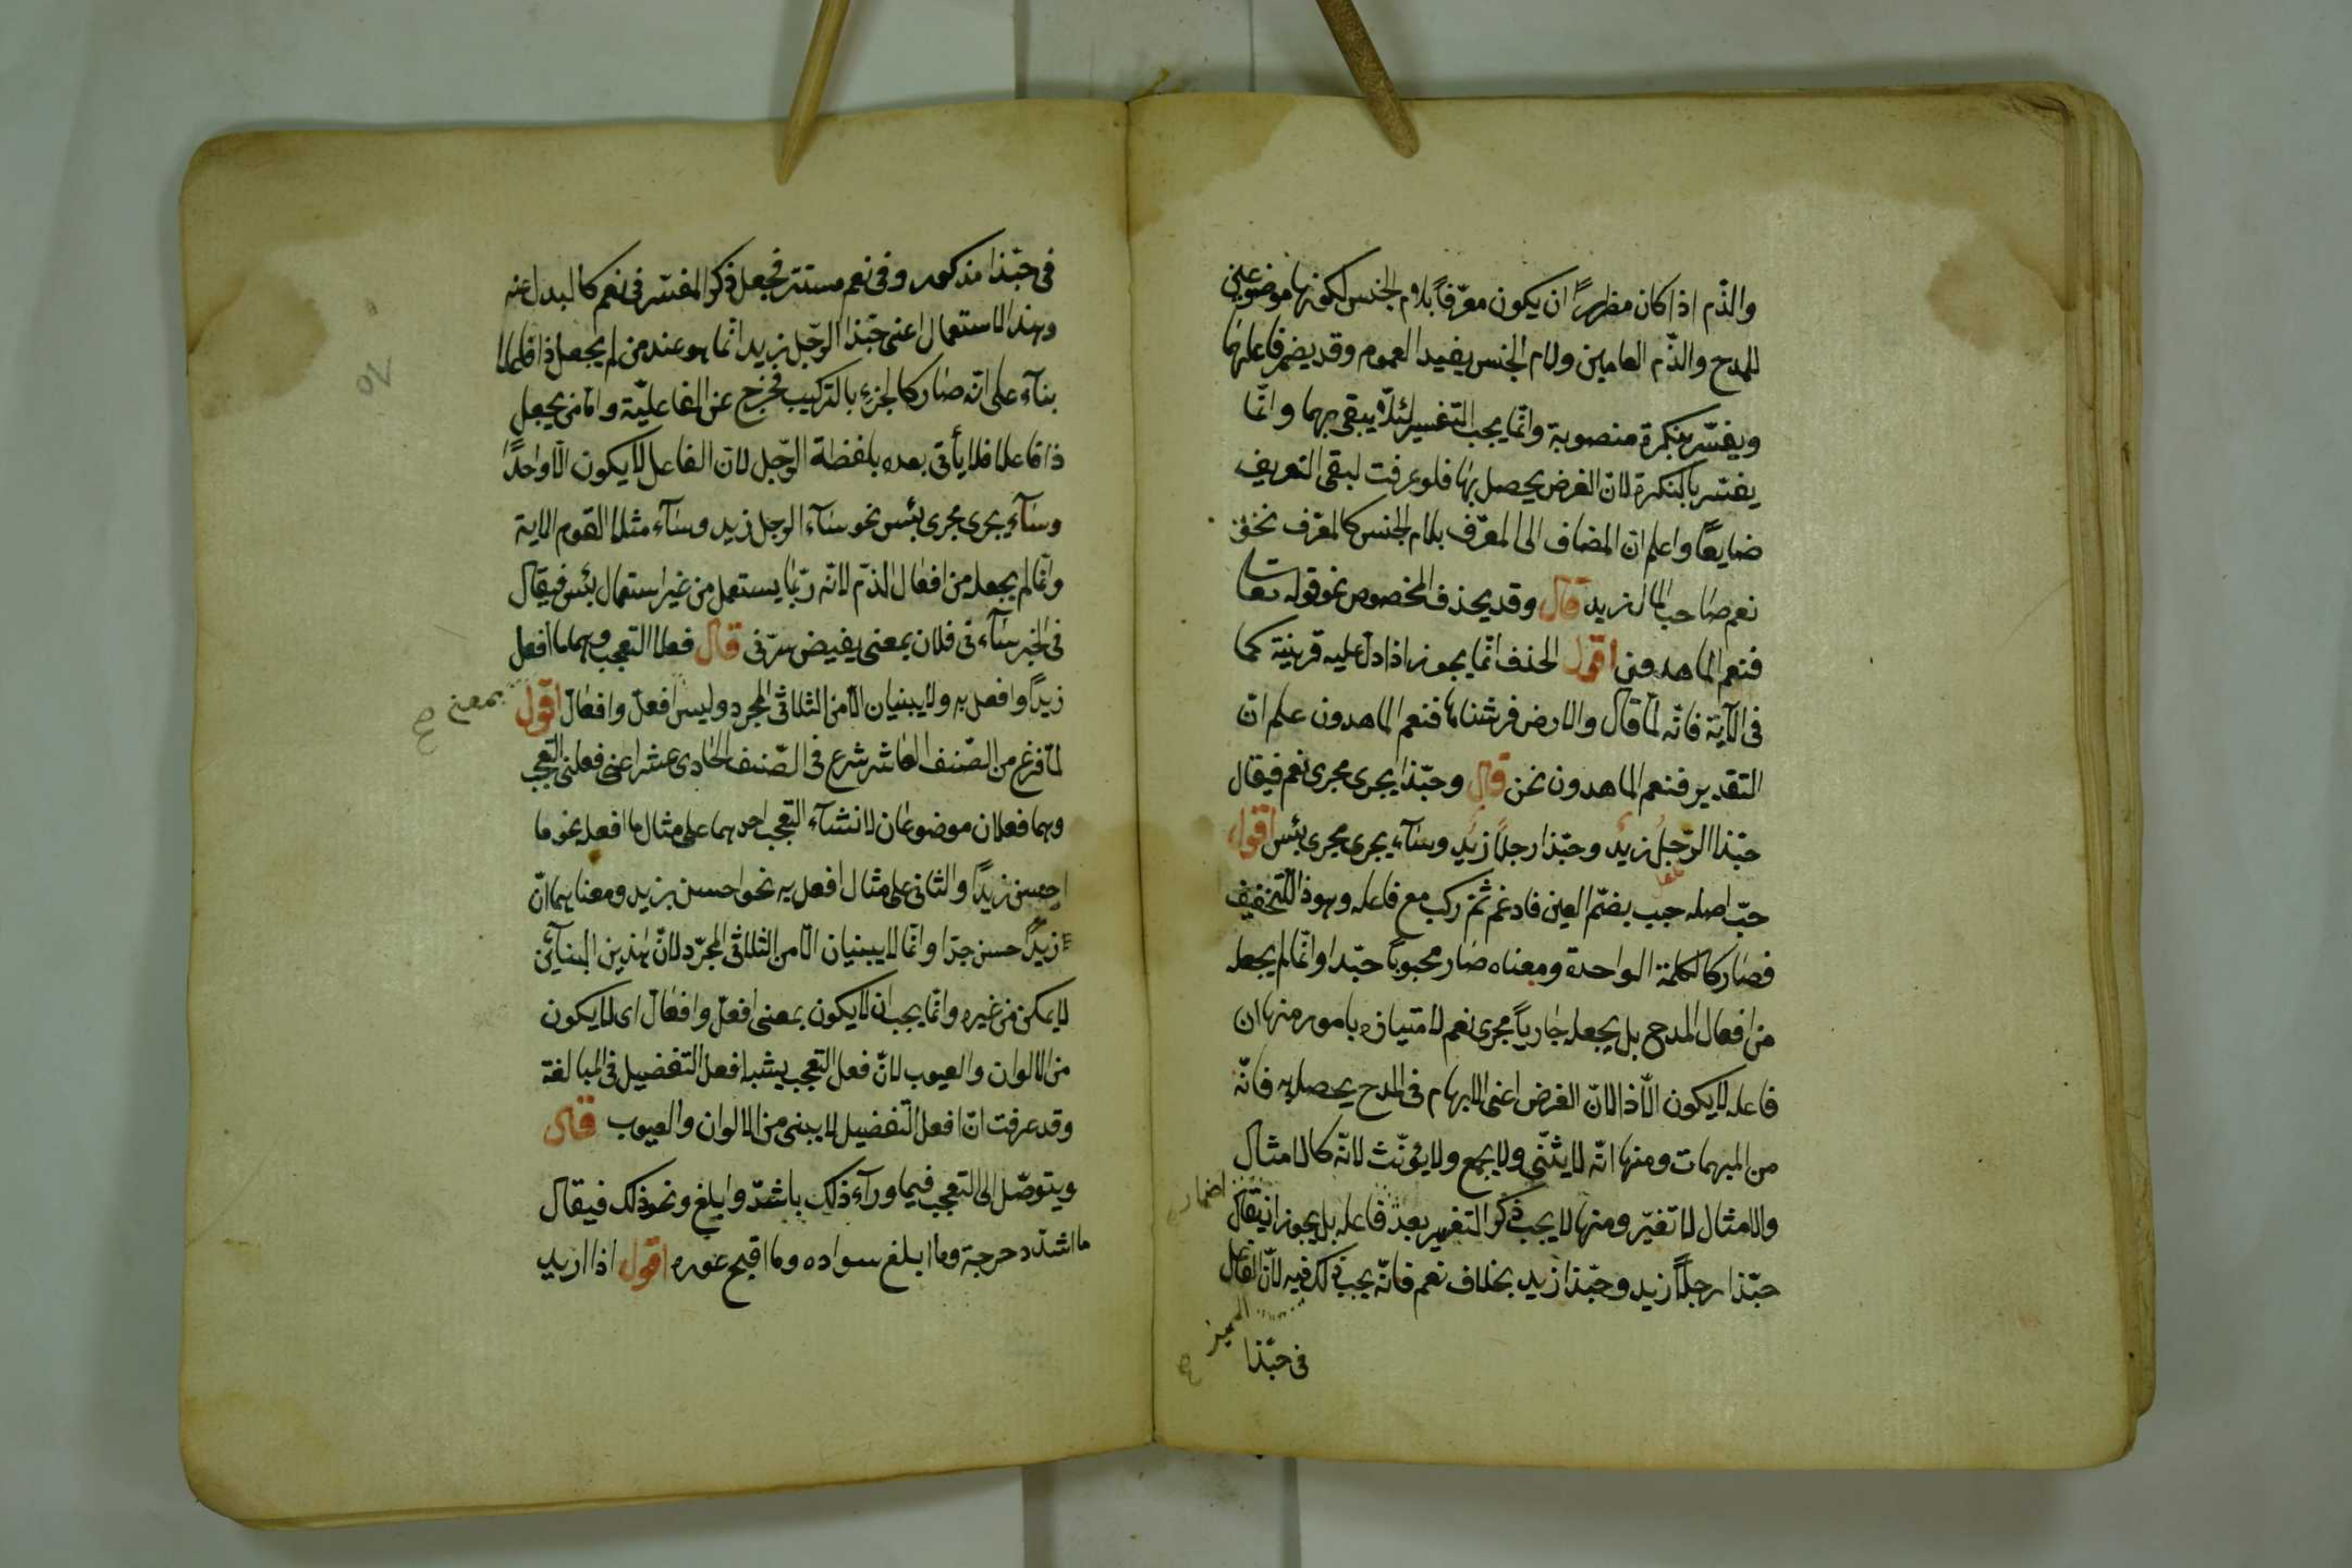 والذّم اذا كان مظهرًا ان يكون معرّفًا بلام الجنس لكونها موضوعين
للمدح والذّم العامين ولام الجنس يفيد العموم وقد يضمر فاعلهما
ويفسّر بنكرة منصوبة وانّما يجب التفسير لئلّا يبقى مبهما وانّما
يفسّر بالنكرة لانّ الغرض يحصل بها فلو عرفت لبقى التعريف
ضايعًا واعلم انّ المضاف الى المعرّف بلام الجنس كالمعرّف نحو
نعم صاحب المال زيد قال وقد يحذف المخصوص نحو قوله تعا
فنعم الماهدون اقول الحذف انّما يجوز اذا دلّ عليه قرينة كما
فى الآية فانّه لمّا قال والارض فرشناها فنعم الماهدون علم انّ
التقدير فنعم الماهدون نحن قال وحبّذا يجرى مجرى نعم فيقال
حبّذا الرّجلُ زيدٌ وحبّذا رجلًا زيد وسآء يجرى مجرى بئس اقول
حبّ اصله حبب بضمّ العين فادغم ثم ركب مع فاعله وهو ذا للتخفيف
فصار كالكلمة الواحدة ومعناه صار محبوبًا جّدا وانّما لم يجعله
من افعال المدح بل يجعله جاريًا مجرى نعم لامتيازه بامور منها ان
فاعله لا يكون الّا ذا لانّ الغرض اعنى الابهام فى المدح يحصل به فانّه
من المبهمات ومنها انّه لا يثنّى ولا يجمع ولا يؤنّث لانّه كالامثال
والامثال لا تغيّر ومنها لا يجب ذكر التغيير بعد فاعله بل يجوز ان يقال
اضمار
حبّذا رجلًا زيد وحبّذا زيد بخلاف نعم فانّه يجب ذلك فيه لانّ الفاعل
المميز
فى حبّذا
فى حبّذا مذكور وفى نعم مستتر فجعل ذكر المفسّر فى نعم كالبدل عنه
وهذا الاستعمال اعنى حبّذا الرّجل زيد انّما هو عند من لم يجعل ذا فاعلا
بنآء على انّه صار كالجزء بالتركيب فخرج عن الفاعليّة وامّا من يجعل
ذا فاعلا فلا يأتى بعده بلفظة الرّجل لانّ الفاعل لا يكون الّا واحدًا
وسآء يجرى مجرى بئس نحو سآء الرجل زيد وسآء مثلا القوم الاية
وانّما لم يجعله من افعال الذّم لانّه ربّما يستعمل من غير استعمال بئس فيقال
فى الخبر سآء نى فلان بمعنى يفيض سرّنى قال فعلا التعجب وهما ما افعل
زيدًا وافعل به ولا يبنيان الّا من الثلاثى المجرد وليس افعلّ وافعالّ اقول
بمعنى
لمّا فرغ من الصّنف العاشر شرع فى الصّنف الحادى عشر اعنى فعلى التعجب
وهما فعلان موضوعان لانشآء التعجب احدهما على مثال ما افعل نحو ما
احسن زيدًا والثانى على مثال افعل به نحو احسن بزيد ومعناهما انّ
زيدًا حسن جدّا وانّما لا يبنيان الّا من الثلاثى المجرّد لانّ هذين البنآئين
لا يمكن من غيره وانّما يجب ان لا يكون بمعنى افعلّ وافعالّ اى لا يكون
من الالوان والعيوب لانّ فعل التعجب يشبه افعل التفضيل فى المبالغة
وقد عرفت انّ افعل التفضيل لا يبنى من الالوان والعيوب قال
ويتوصّل الى التعجب فيما ورآء ذلك باشدّ وابلغ ونحو ذلك فيقال
ما اشدّ دحرجة وما ابلغ سواده وما اقبح عوره اقول اذا اريد